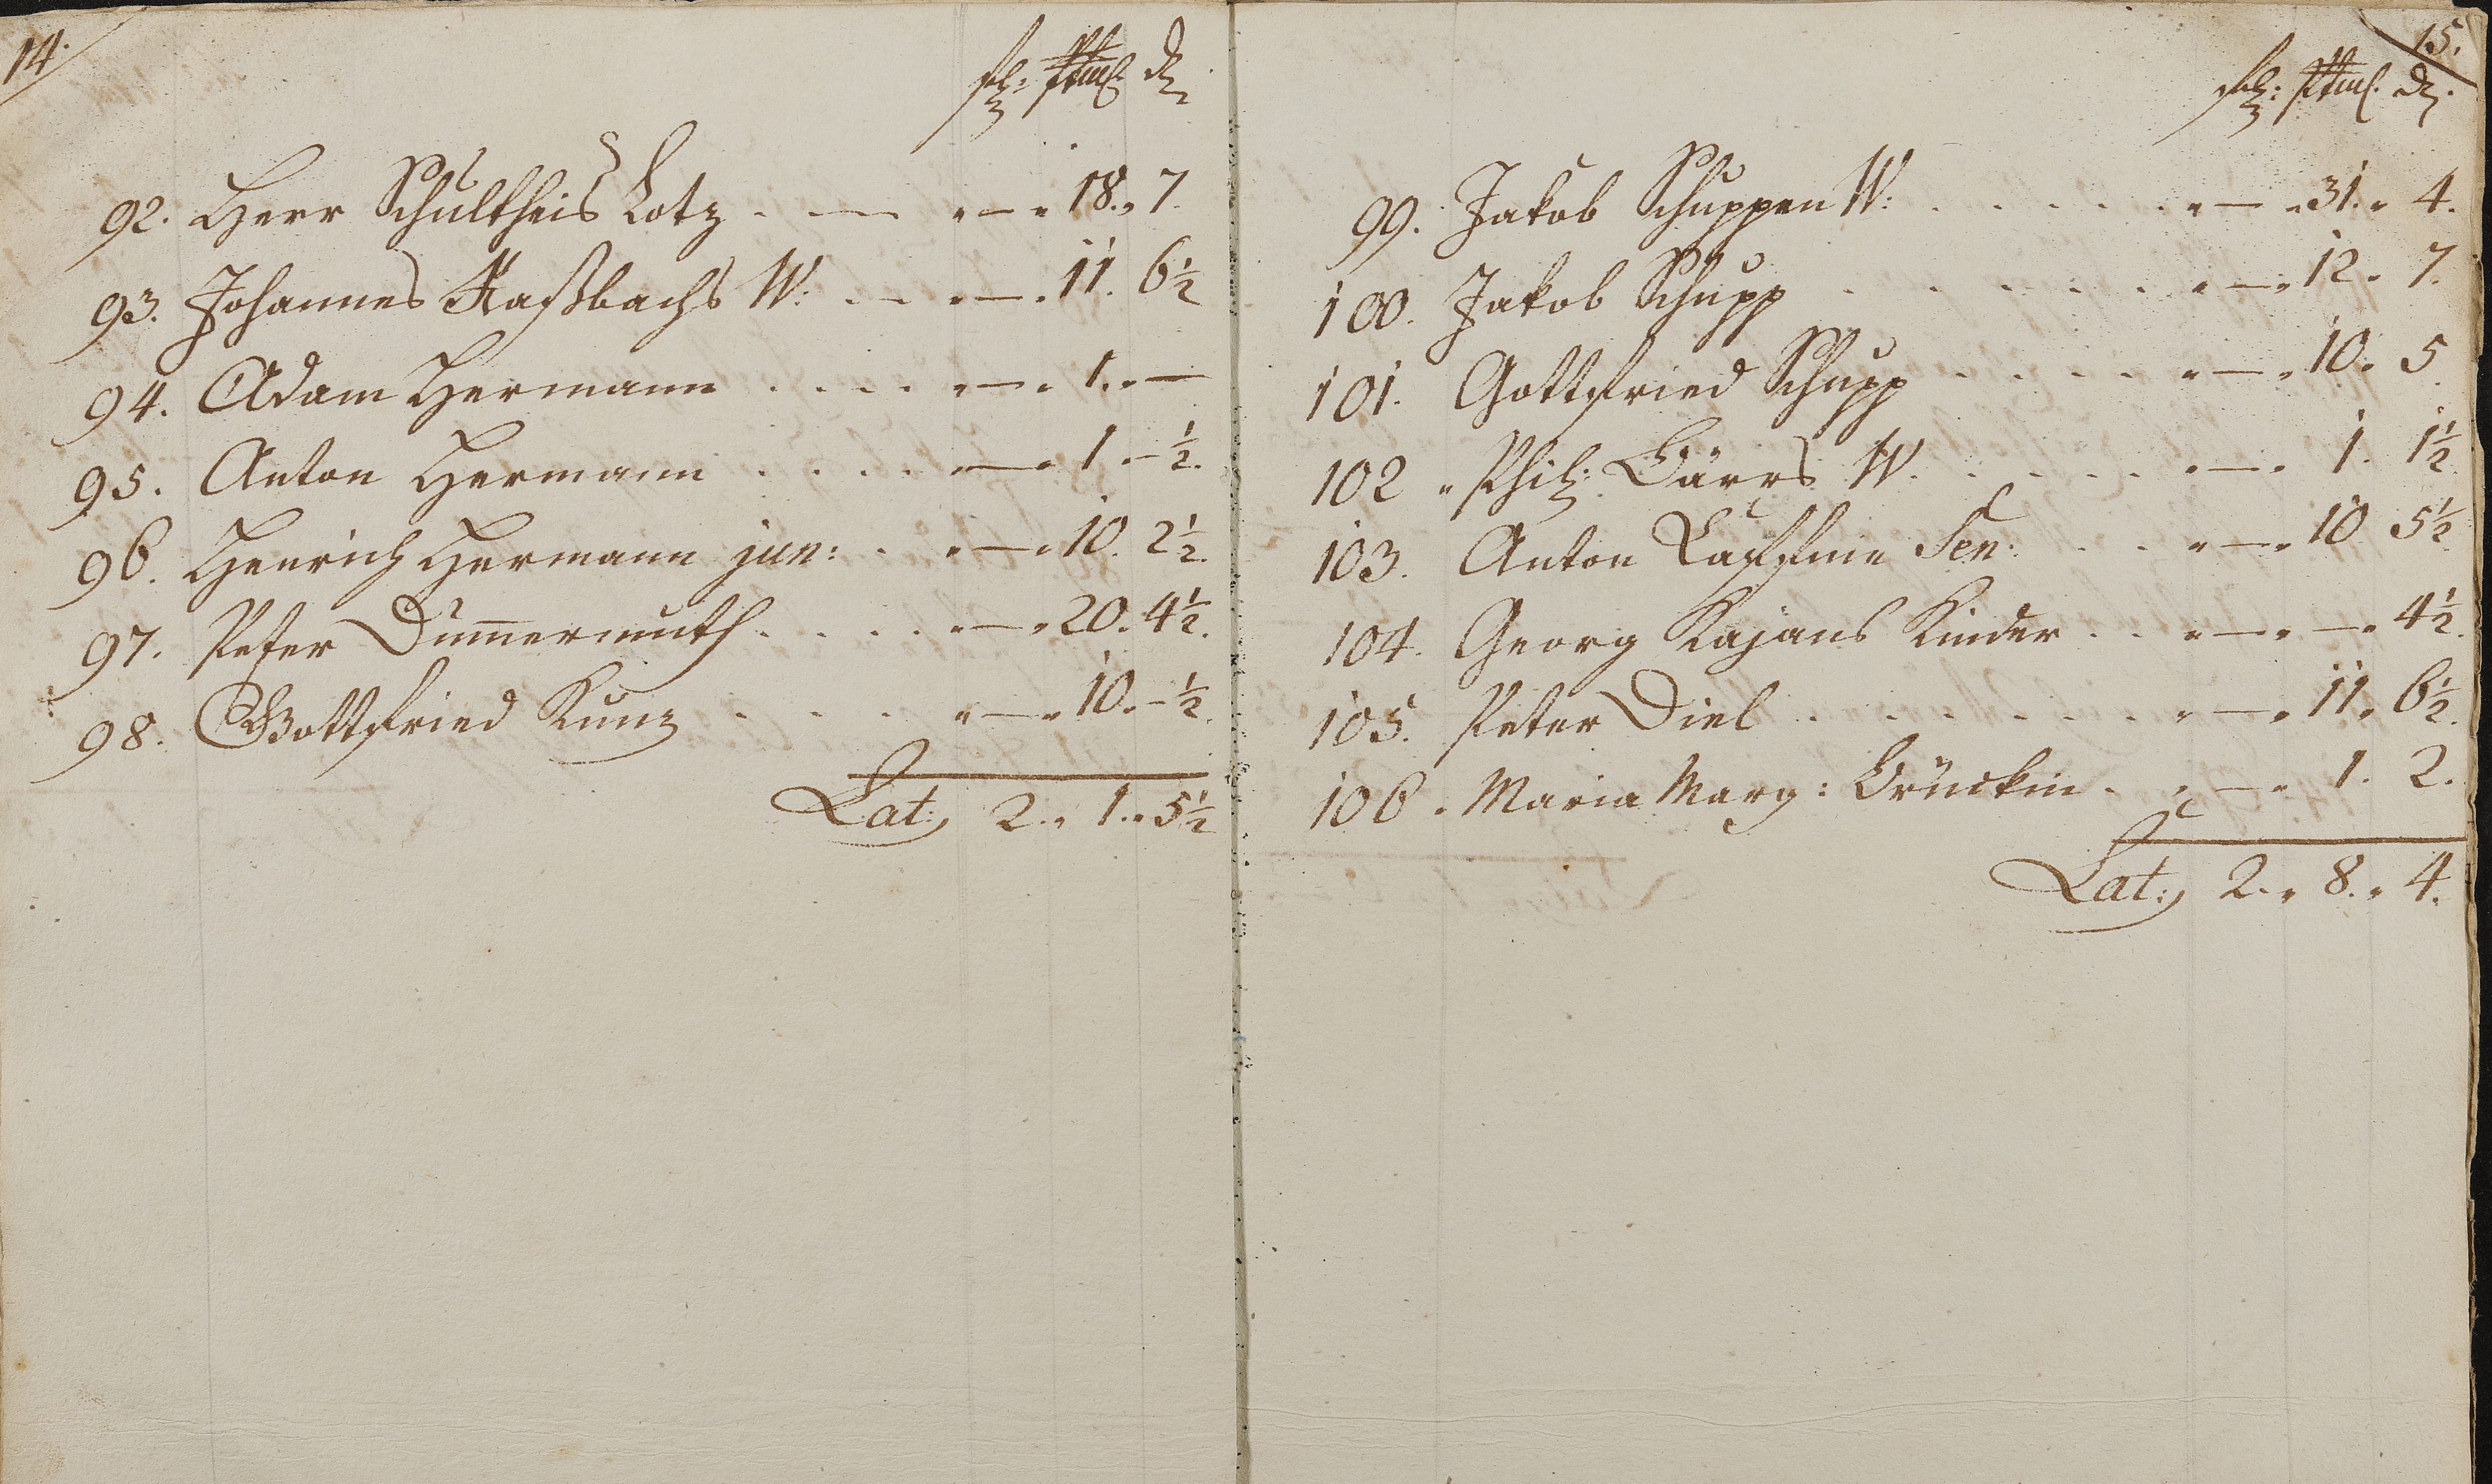 14.
92. Herr Schultheis Lotz . — „ — „ 18. „ 7.
93. Johannes Kaßbachs W: . — „ — . 11. 6½
94. Adam Hermann . . . . „ — „ 1. „ —
95. Anton Hermann . . . . „ — „ 1 „ – ½.
96. Henrich Hermann jun: . „ — „ 10. 2½.
97. Peter Dum̅ermuth . . . . „ — „ 20. 4½.
98. Gottfried Kunz . . . . „ — „ 10. – ½.
Lat: 2. „ 1. „ 5½
15.
99. Jakob Schuppen W: . . . . . . „ — „ 31. „ 4.
100. Jakob Schupp . . . . . . „ — „ 12 „ 7.
101. Gottfried Schupp . . . . „ — „ 10. 5.
102 „ Phil: Därrs W. . . . . „ — „ 1. 1½
103. Anton Sen: . . „ — „ 10 5½
104. Georg Kajans Kinder . . „ — „ — „ 4½.
105. Peter Diel . . . . . . . „ — „ 11 „ 6½.
106. Maria Marg: . „ — „ 1. 2.
Lat: 2. „ 8. „ 4.